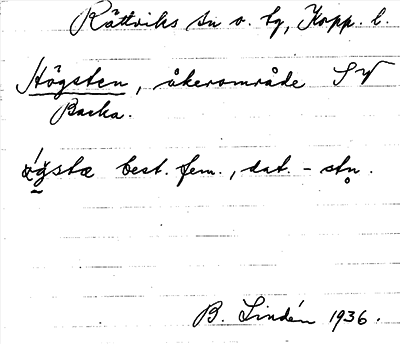 Rättviks sn o. tg, Kopp. l.
Högsten, åkerområde SV
Backa.
best. fem., dat. - stn̥.
B. Lindén 1936.